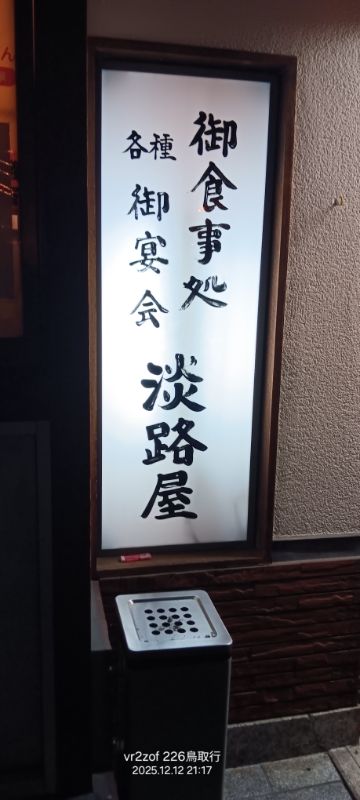 御食事処
各種
御宴会
淡路屋
vr2zof 226鳥取行
2025.12.12 21:17